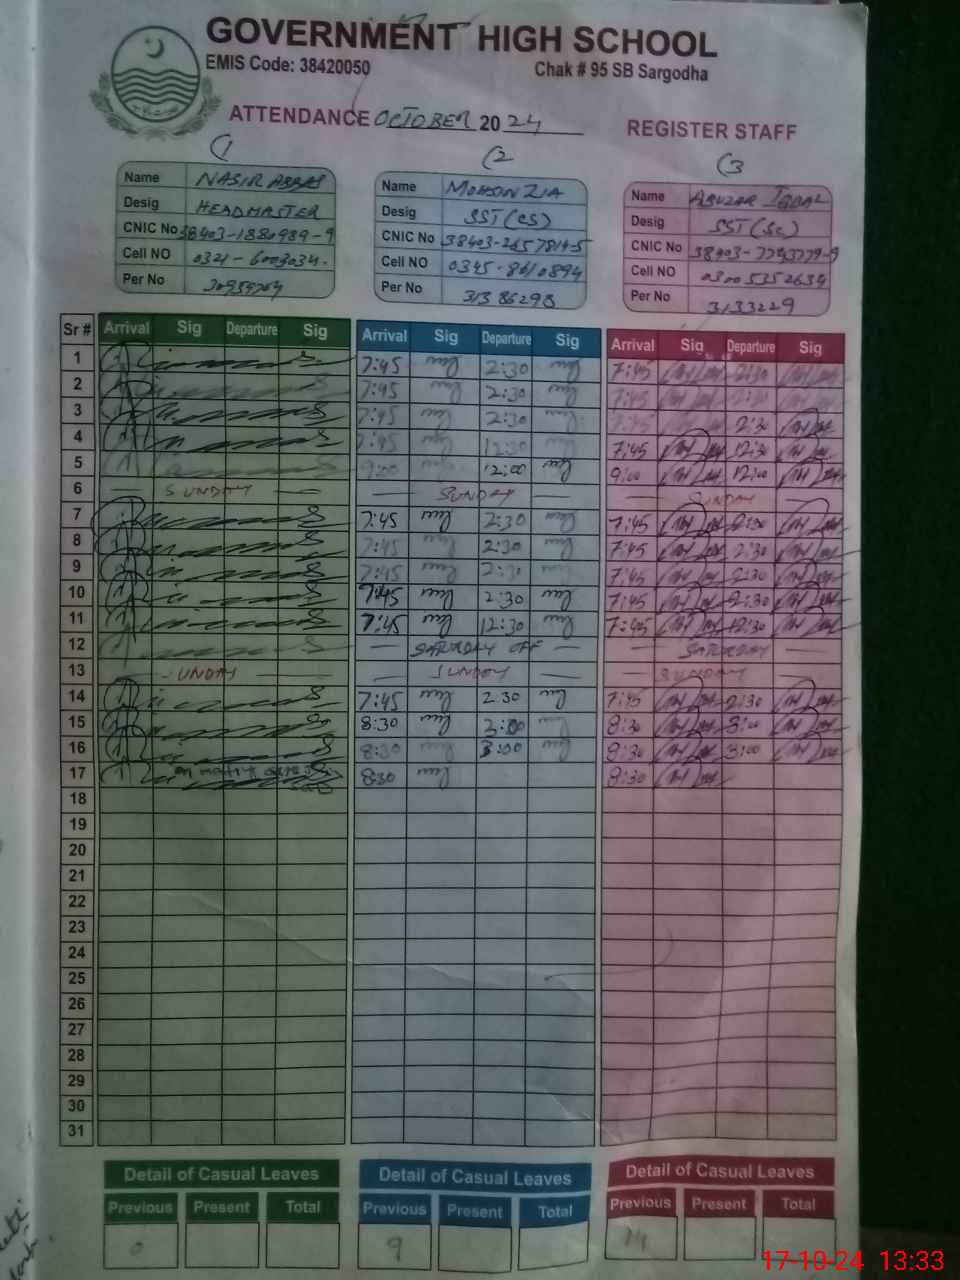 GOVERNMENT HIGH SCHOOL
EMIS Code: 38420050 Chak # 95 SB Sargodha
ATTENDANCE OCTOBER 2024 REGISTER STAFF
(1 (2 (3
Name NASIR ABBAS
Desig HEADMASTER
CNIC No 38403-1880989-9
Cell NO 0321-6003034.
Per No
Name MOHSIN ZIA
Desig SST(CS)
CNIC No
Cell NO 0345-8610894
Per No 31386298
Name ABUZAR IQBAL
Desig SST(Sc)
CNIC No
Cell NO 03005352634
Per No 3133229
Sr # Arrival Sig Departure Sig Arrival Sig Departure Sig Arrival Sig Departure Sig
1 7:45 2:30 7:45 2:30
2 7:45 2:30 7:45 2:30
3 7:45 2:30 7:45 2:30
4 7:45 12:30 7:45 12:30
5 9:00 12:00 9:00 12:00
6 SUNDAY SUNDAY SUNDAY
7 7:45 2:30 7:45 2:30
8 7:45 2:30 7:45 2:30
9 7:45 2:30 7:45 2:30
10 7:45 2:30 7:45 2:30
11 7:45 12:30 7:45 12:30
12 SATURDAY OFF SATURDAY
13 SUNDAY SUNDAY SUNDAY
14 7:45 2:30 7:45 2:30
15 8:30 3:00 8:30 3:00
16 8:30 3:00 8:30 3:00
17 8:30 8:30
18
19
20
21
22
23
24
25
26
27
28
29
30
31
Detail of Casual Leaves Detail of Casual Leaves Detail of Casual Leaves
Previous Present Total Previous Present Total Previous Present Total
0 9
17-10-24 13:33